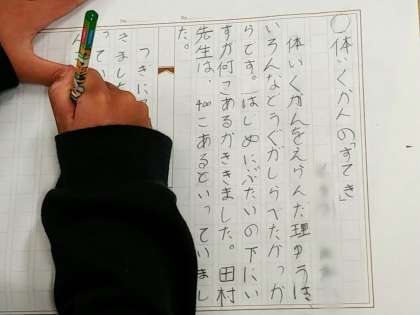 ○体いくかんの「すてき」
体いくかんをえらんだ理ゆうは、
いろんなどうぐがしらべたかっか
らです。はじめにぶたいの下にい
すが何こあるかききました。田村
先生は、400こあるといっていまし
た。
つぎに
さました
ってい
ん